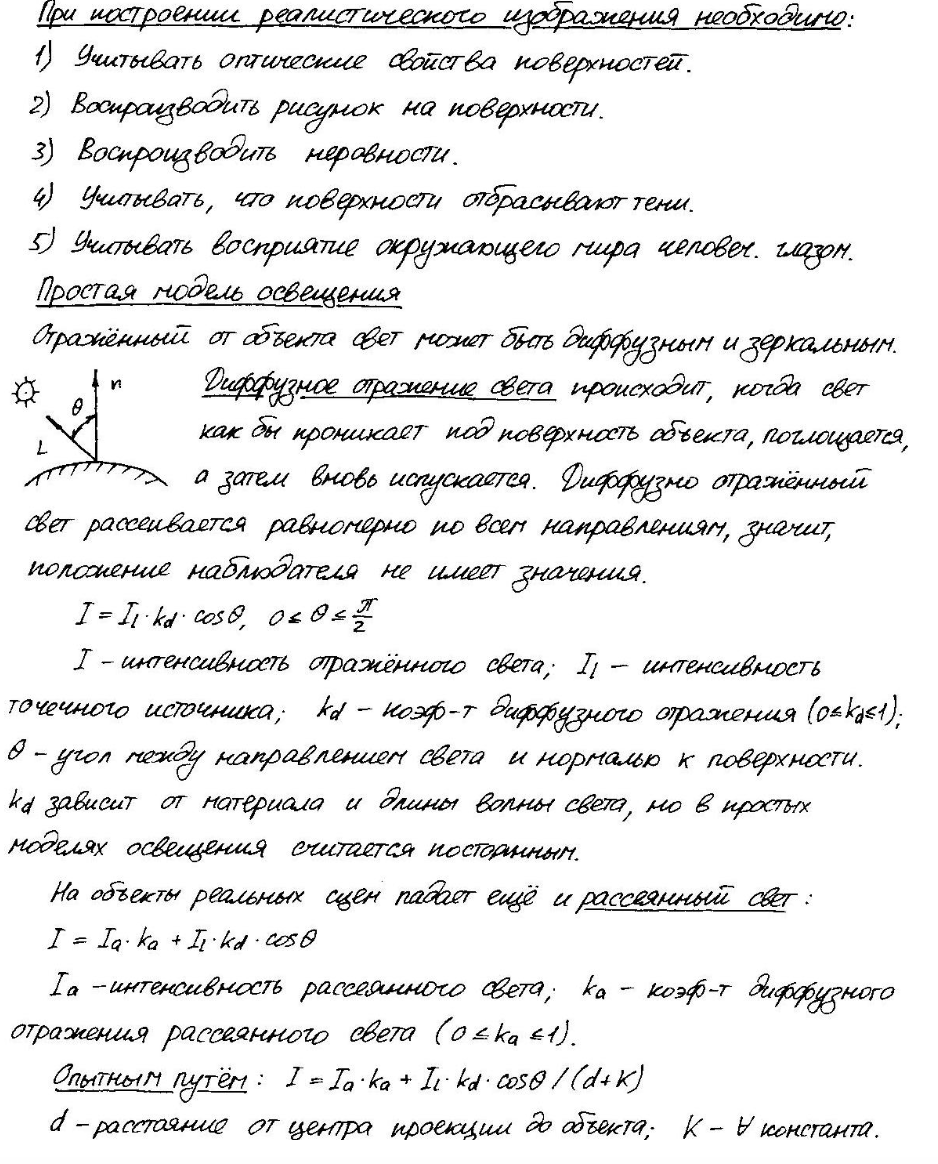 При построении реалистического изображения необходимо:
1) Учитывать оптические свойства поверхностей.
2) Воспроизводить рисунок на поверхности.
3) Воспроизводить неровности.
4) Учитывать, что поверхности отбрасывают тени.
5) Учитывать восприятие окружающего мира человеч. глазом.
Простая модель освещения
Отражённый от объекта свет может быть диффузным и зеркальным.
n
θ
L
Диффузное отражение света происходит, когда свет
как бы проникает под поверхность объекта, поглощается,
а затем вновь испускается. Диффузно отражённый
свет рассеивается равномерно по всем направлениям, значит,
положение наблюдателя не имеет значения.
I = I_l · k_d · cosθ, 0 ≤ θ ≤ π/2
I – интенсивность отражённого света; I_l – интенсивность
точечного источника; k_d – коэф-т диффузного отражения (0≤k_d≤1);
θ – угол между направлением света и нормалью к поверхности.
k_d зависит от материала и длины волны света, но в простых
моделях освещения считается постоянным.
На объекты реальных сцен падает ещё и рассеянный свет:
I = I_a · k_a + I_l · k_d · cosθ
I_a – интенсивность рассеянного света; k_a – коэф-т диффузного
отражения рассеянного света (0 ≤ k_a ≤ 1).
Опытным путём: I = I_a · k_a + I_l · k_d · cosθ / (d+K)
d – расстояние от центра проекции до объекта; K – ∀ константа.